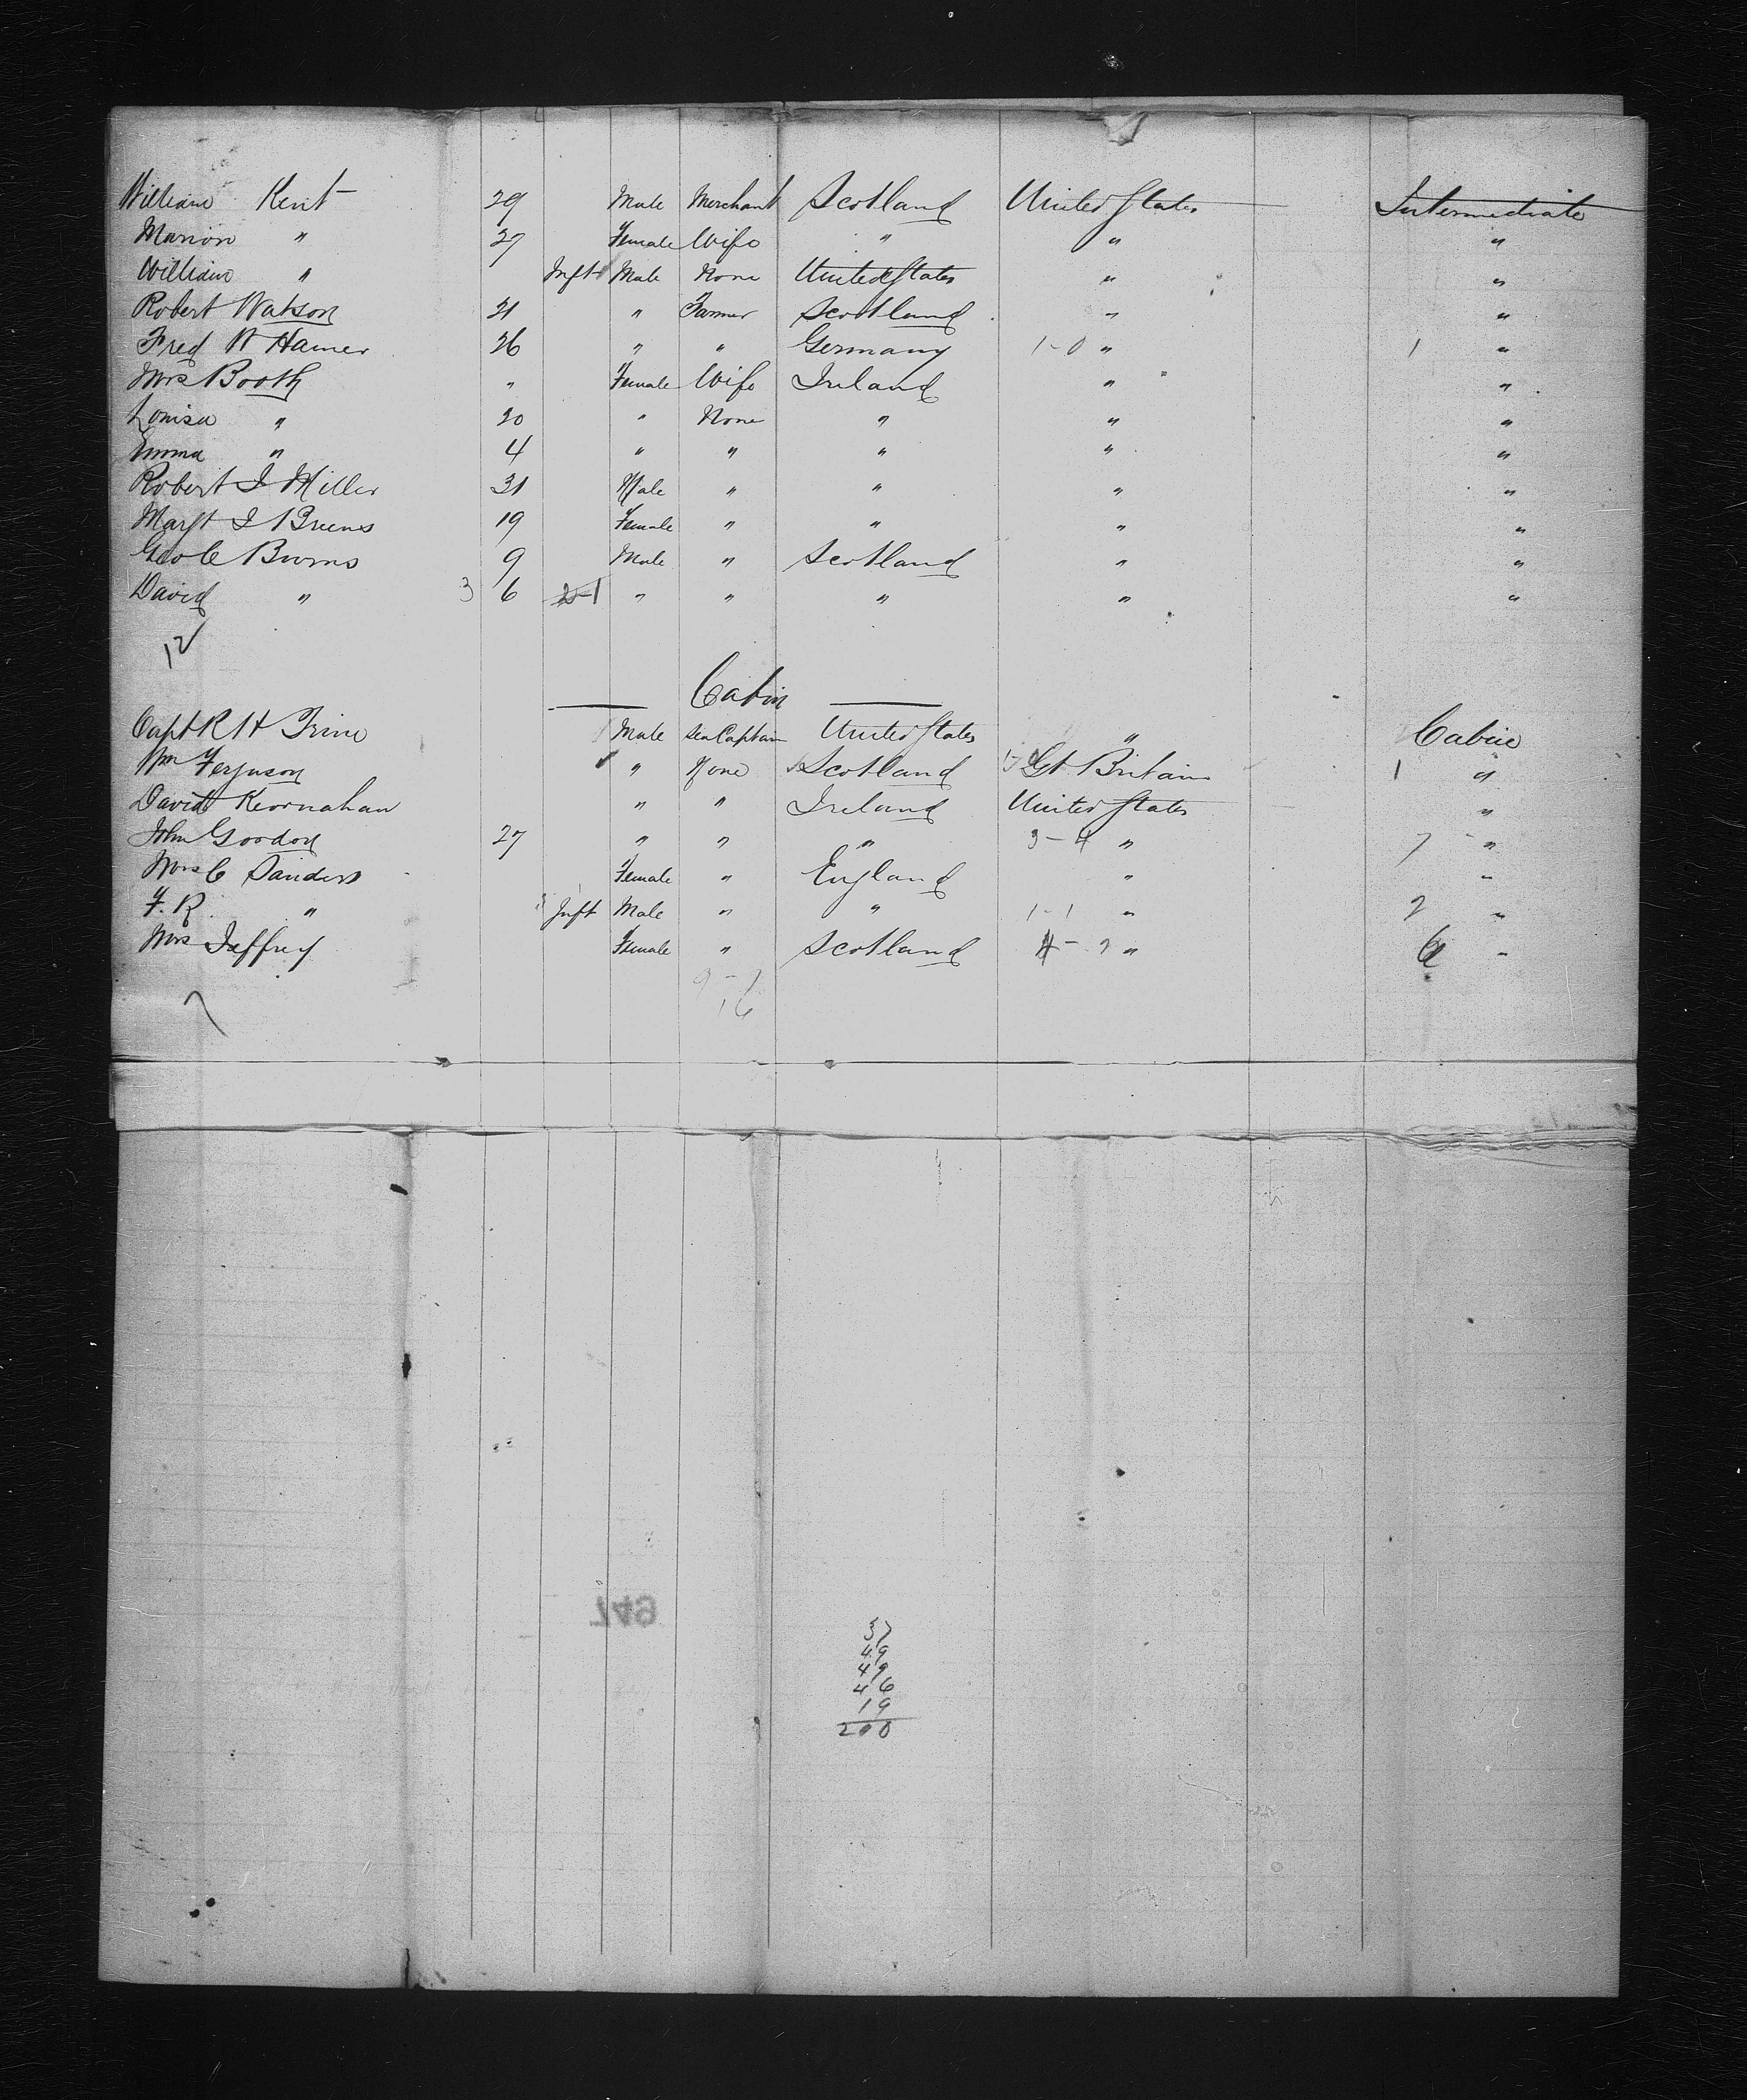 William Kent 29 Male Merchant Scotland United States Intermediate
Marion " 27 Female Wife " " "
William " Inft Male None United States " "
Robert Watson 21 " Farmer Scotland " "
Fred W Hamer 26 " " Germany 1-0 " 1 "
Mrs Booth " Female Wife Ireland " "
Louisa " 20 " None " " "
Emma " 4 " " " " "
Robert J Miller 31 Male " " " "
Margt J 19 Female " " " "
Geo C Burns 9 Male " Scotland " "
David " 3 6 " " " " "
12
Cabin
Capt R H Male Sea Captain United States " Cabin
Wm Ferguson " None Scotland Gt Britain 1 "
David " " Ireland United States "
John Gordon 27 " " " 3-4 " 7 "
Mrs C Sanders Female " England " "
F. R. " Inft Male " " 1-1 " 2 "
Mrs Jeffrey Female " Scotland "
7
947
37
49
49
46
19
200